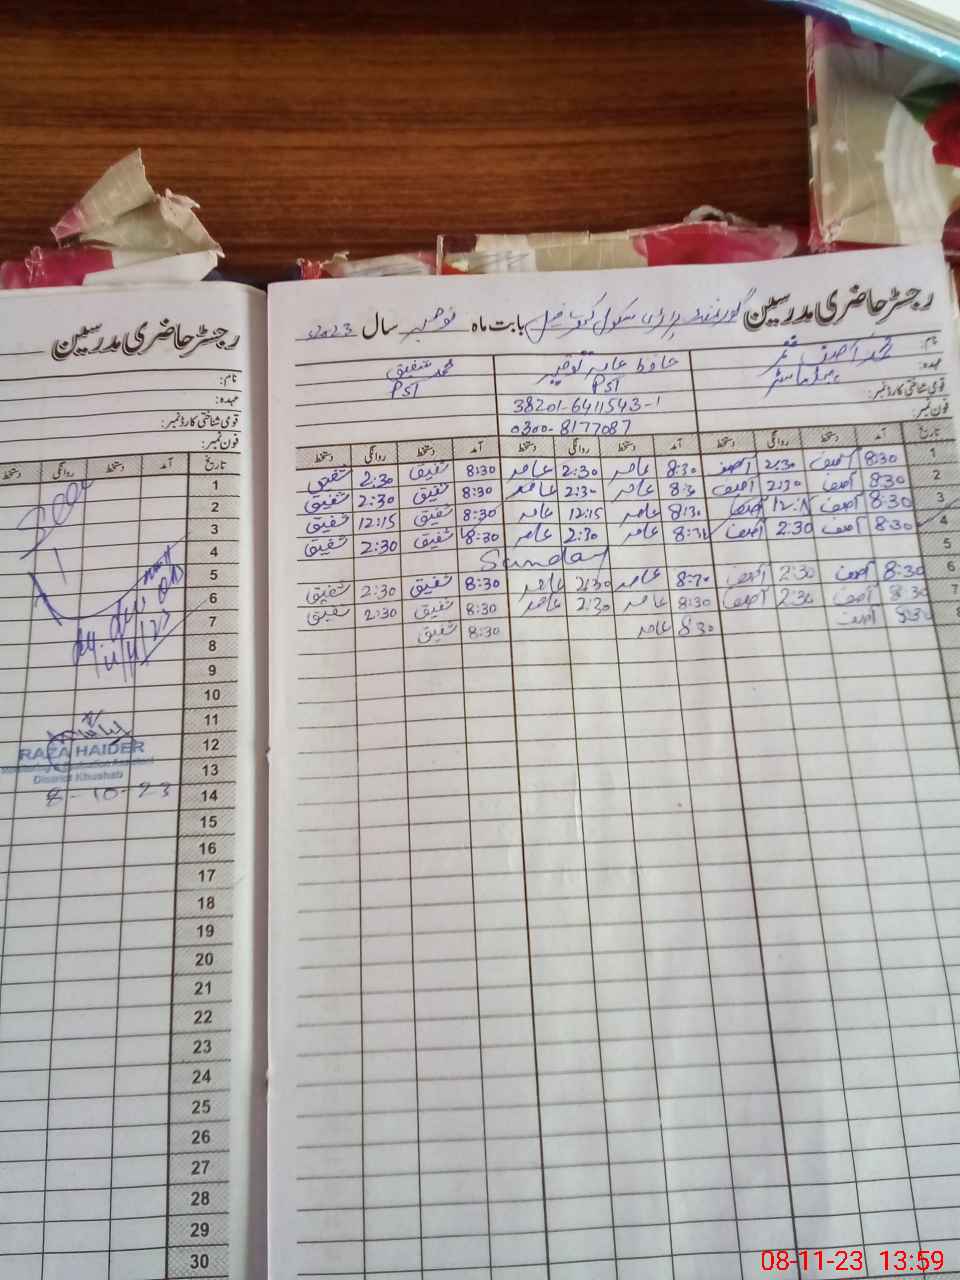 رجسٹر حاضری مدرسین
نام:
عہدہ:
قومی شناختی کارڈ نمبر:
فون نمبر:
تاریخ آمد دستخط روانگی دستخط
1
2
3
4
5
6
7
8
9
10
11
12
13
14
15
16
17
18
19
20
21
22
23
24
25
26
27
28
29
30
RAZA HAIDER
District Khushab
8-10-23
رجسٹر حاضری مدرسین گورنمنٹ پرائمری سکول بابت ماہ نومبر سال 2023
نام: محمد آصف حافظ عامر محمد شفیق
عہدہ: ہیڈ ماسٹر PST PST
قومی شناختی کارڈ نمبر: 38201-6411543-1
فون نمبر: 0300-8177087
آمد دستخط روانگی دستخط آمد دستخط روانگی دستخط آمد دستخط روانگی دستخط
1 8:30 آصف 2:30 آصف 8:30 عامر 2:30 عامر 8:30 شفیق 2:30 شفیق
2 8:30 آصف 2:30 آصف 8:30 عامر 2:30 عامر 8:30 شفیق 2:30 شفیق
3 8:30 آصف آصف 8:30 عامر 12:15 عامر 8:30 شفیق 12:15 شفیق
4 8:30 آصف 2:30 آصف 8:30 عامر 2:30 عامر 8:30 شفیق 2:30 شفیق
5 Sunday
6 8:30 آصف 2:30 آصف 8:30 عامر 2:30 عامر 8:30 شفیق 2:30 شفیق
7 8:30 آصف 2:30 آصف 8:30 عامر 2:30 عامر 8:30 شفیق 2:30 شفیق
8 8:30 آصف 8:30 عامر 8:30 شفیق
08-11-23 13:59